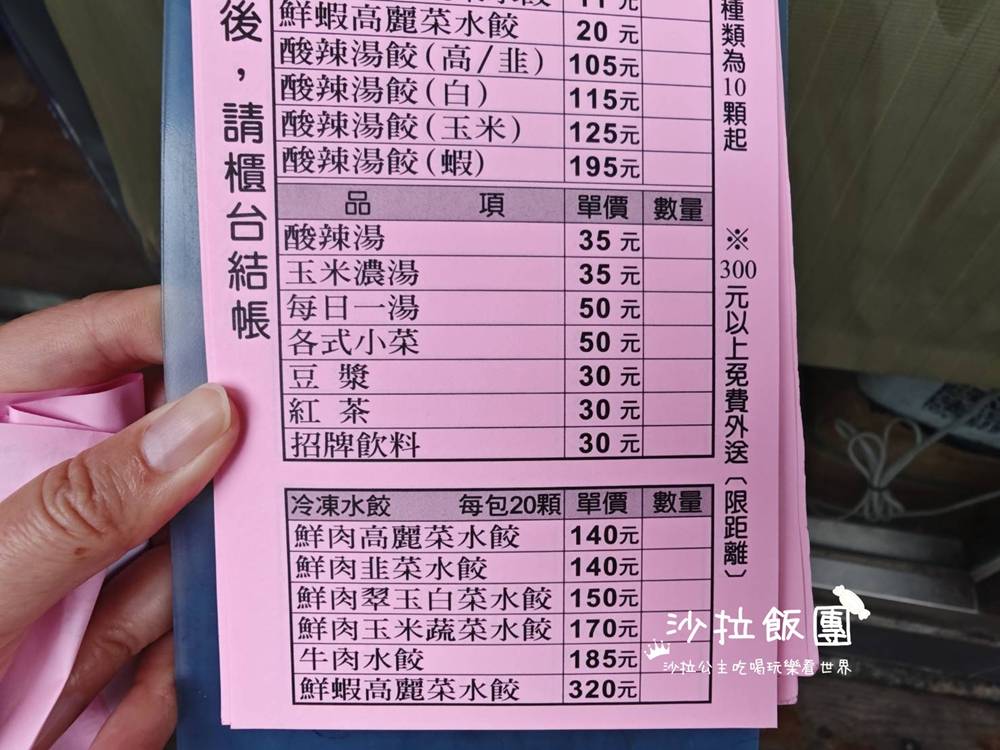 後，請櫃台結帳
鮮蝦高麗菜水餃 20元
酸辣湯餃(高/韭) 105元
酸辣湯餃(白) 115元
酸辣湯餃(玉米) 125元
酸辣湯餃(蝦) 195元
品項 單價 數量
酸辣湯 35元
玉米濃湯 35元
每日一湯 50元
各式小菜 50元
豆漿 30元
紅茶 30元
招牌飲料 30元
冷凍水餃 每包20顆 單價 數量
鮮肉高麗菜水餃 140元
鮮肉韭菜水餃 140元
鮮肉翠玉白菜水餃 150元
鮮肉玉米蔬菜水餃 170元
牛肉水餃 185元
鮮蝦高麗菜水餃 320元
種類為10顆起
※300元以上免費外送〔限距離〕
沙拉飯團
沙拉公主吃喝玩樂看世界